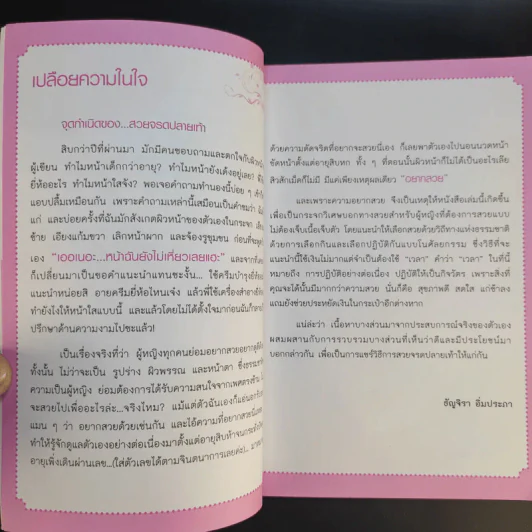 เปลือยความในใจ
จุดกำเนิดของ...สวยจรดปลายเท้า
สิบกว่าปีที่ผ่านมา มักมีคนชอบถามและตกใจกับผิวหน้า
ผู้เขียน ทำไมหน้าเด็กกว่าอายุ? ทำไมหน้ายังเต่งตึงอยู่เลย?
ยี่ห้ออะไร ทำไมหน้าใสจัง? พอเจอคำถามทำนองนี้บ่อย ๆ เข้า
แอบปลื้มเหมือนกัน เพราะคำถามเหล่านี้เสมือนเป็นคำชมว่า
แก่ และบ่อยครั้งที่ฉันมักสังเกตผิวหน้าของตัวเองในกระจก
ซ้าย เอียงแก้มขวา เลิกหน้าผาก และจ้องรูขุมขน ก่อนที่จะ
เอง "เออเนอะ...หน้าฉันยังไม่เหี่ยวเลยแฮะ" และจากที่
ก็เปลี่ยนมาเป็นขอคำแนะนำแทนซะงั้น... ใช้ครีมบำรุงยี่ห้อ
แนะนำหน่อยสิ อายครีมยี่ห้อไหนเจ๋ง แล้วพี่ใช้เครื่องสำอาง
ทำยังไงให้หน้าใสแบบนี้ และแล้วโดยไม่ได้ตั้งใจมาก่อนฉันก็
ปรึกษาด้านความงามไปซะแล้ว!
เป็นเรื่องจริงที่ว่า ผู้หญิงทุกคนย่อมอยากสวยอยากดูดี
ทั้งนั้น ไม่ว่าจะเป็น รูปร่าง ผิวพรรณ และหน้าตา ซึ่งธรรมชาติ
ความเป็นผู้หญิง ย่อมต้องการได้รับความสนใจจากเพศตรงข้าม
จะสวยไปเพื่ออะไรล่ะ...จริงไหม? แม้แต่ตัวฉันเองก็แอบ
แมน ๆ ว่า อยากสวยด้วยเช่นกัน และไอ้ความที่อยากสวยนี่
ทำให้รู้จักดูแลตัวเองอย่างต่อเนื่องมาตั้งแต่อายุสิบห้าจน
อายุเพิ่งเดินผ่านเลข...(ใส่ตัวเลขได้ตามจินตนาการเลยค่ะ)...
ด้วยความดัดจริตที่อยากจะสวยนี่เอง ก็เลยพาตัวเองไปนอนนวดหน้า
ขัดหน้าตั้งแต่อายุสิบหก ทั้ง ๆ ที่ตอนนั้นผิวหน้าก็ไม่ได้เป็นอะไรเลย
สิวสักเม็ดก็ไม่มี มีแค่เพียงเหตุผลเดียว "อยากสวย"
และเพราะความอยากสวย จึงเป็นเหตุให้หนังสือเล่มนี้เกิดขึ้น
เพื่อเป็นกระจกวิเศษบอกทางสวยสำหรับผู้หญิงที่ต้องการสวยแบบ
ไม่ต้องเจ็บเนื้อเจ็บตัว โดยแนะนำให้เลือกสวยด้วยวิถีทางแห่งธรรมชาติ
ด้วยการเลือกกินและเลือกปฏิบัติกันแบบไม่ศัลยกรรม ซึ่งวิธีที่จะ
แนะนำนี้ใช้เงินไม่มากแต่จำเป็นต้องใช้ "เวลา" คำว่า "เวลา" ในที่นี้
หมายถึง การปฏิบัติอย่างต่อเนื่อง ปฏิบัติให้เป็นกิจวัตร เพราะสิ่งที่
คุณจะได้นั้นมีมากกว่าความสวย นั่นก็คือ สุขภาพดี สดใส แก่ช้าลง
แถมยังช่วยประหยัดเงินในกระเป๋าอีกต่างหาก
แน่ล่ะว่า เนื้อหาบางส่วนมาจากประสบการณ์จริงของตัวเอง
ผสมผสานกับการรวบรวมบางส่วนที่เห็นว่าดีและมีประโยชน์มา
บอกกล่าวกัน เพื่อเป็นการแชร์วิธีการสวยจรดปลายเท้าให้แก่กัน
ธัญจิรา อิ่มประภา